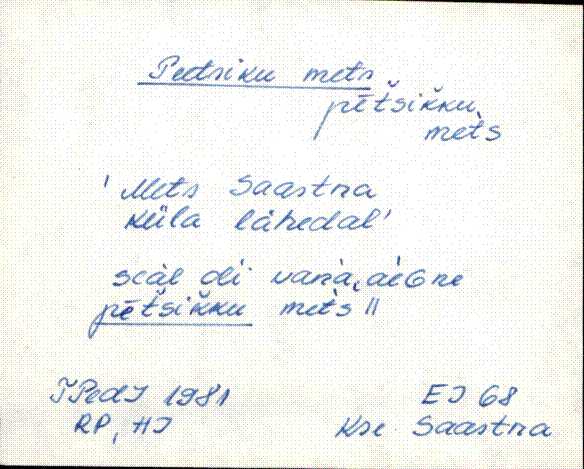 Peetsiku mets
pēt̆šikku
met̀s
'Mets Saastna
küla lähedal'
seàl oli vana, aèGne
pēt̆šikku met̀s ||
TPedI 1981
EJ 68
RP, HJ
Kse Saastna